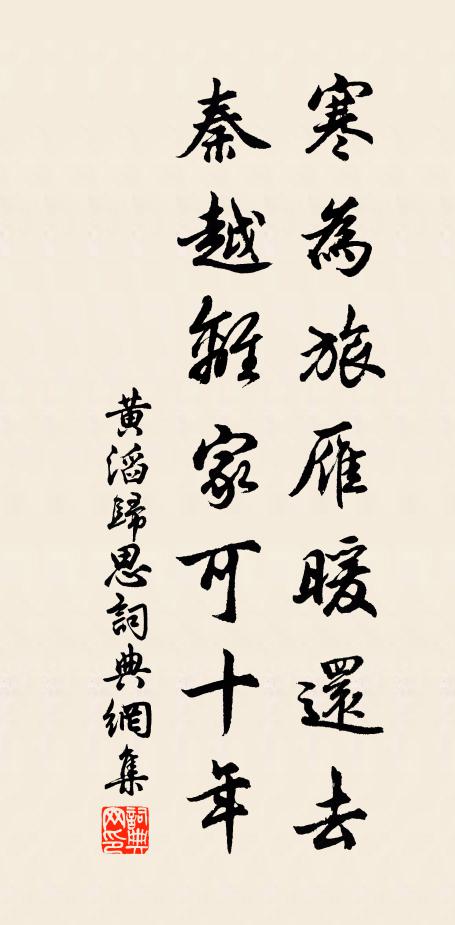 寒為旅雁暖還去
秦越離家可十年
黃滔歸思詞典網集
詞典
网印